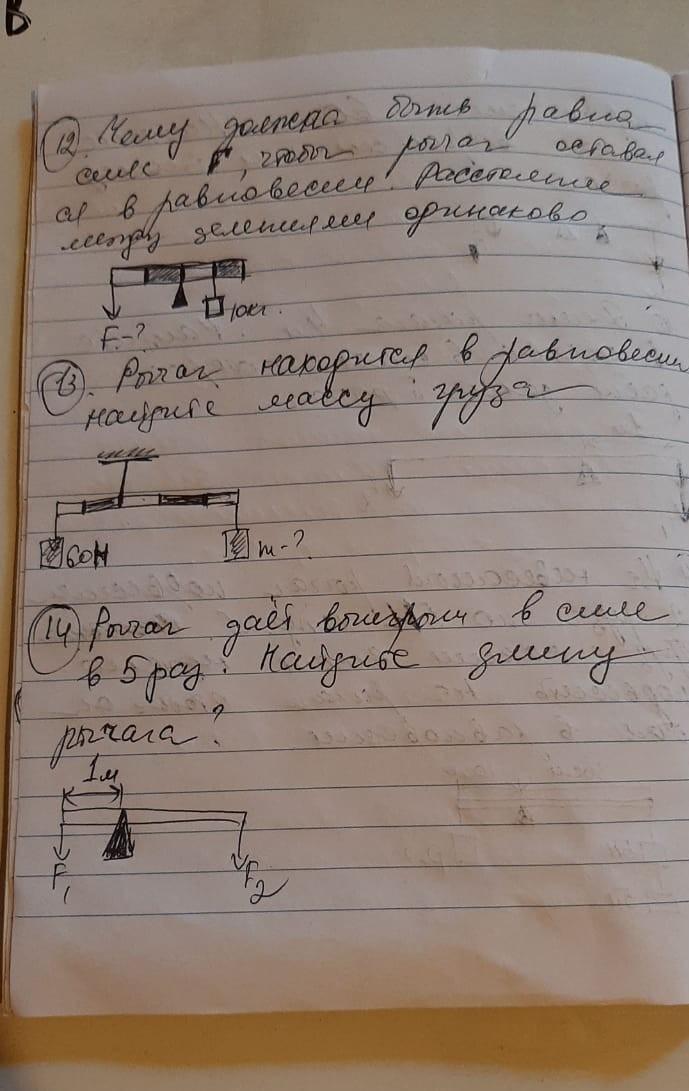 В
12 Чему должна быть равна
сила F, чтобы рычаг оставал
ся в равновесии. Расстояние
между делениями одинаково
10кг.
F-?
13. Рычаг находится в равновесии
найдите массу груза
60Н m-?
14 Рычаг даёт выигрыш в силе
в 5 раз. Найдите длину
рычага?
1м
F₁ F₂